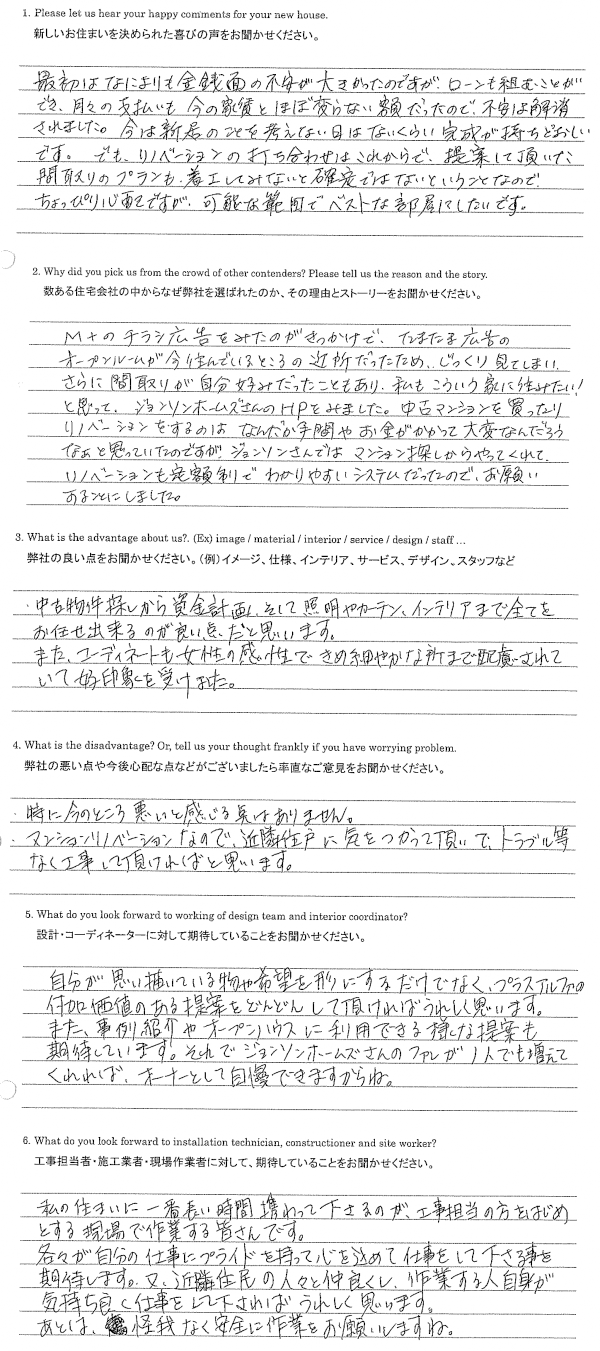 1. Please let us hear your happy comments for your new house.
新しいお住まいを決められた喜びの声をお聞かせください。
最初はなによりも金銭面の不安が大きかったのですが、ローンも組むことが
でき、月々の支払いも今の家賃とほぼ変らない額だったので、不安は解消
されました。今は新居のことを考えない日はないくらい完成が待ちどおしい
です。でも、リノベーションの打ち合わせはこれからで、提案して頂いた
間取りのプランも、着工してみないと確定ではないということなので、
ちょっぴり心配ですが、可能な範囲でベストな部屋にしたいです。
2. Why did you pick us from the crowd of other contenders? Please tell us the reason and the story.
数ある住宅会社の中からなぜ弊社を選ばれたのか、その理由とストーリーをお聞かせください。
M+のチラシ広告をみたのがきっかけで、たまたま広告の
オープンルームが今住んでいるところの近所だったため、じっくり見てしまい、
さらに間取りが自分好みだったこともあり、私もこういう家に住みたい!
と思って、ジョンソンホームズさんのHPをみました。中古マンションを買ったり
リノベーションをするのはなんだか手間やお金がかかって大変なんだろう
なぁと思っていたのですが、ジョンソンさんではマンション探しからやってくれて、
リノベーションも定額制でわかりやすいシステムだったので、お願い
することにしました。
3. What is the advantage about us?. (Ex) image / material / interior / service / design / staff …
弊社の良い点をお聞かせください。(例)イメージ、仕様、インテリア、サービス、デザイン、スタッフなど
・中古物件探しから資金計画、そして照明やカーテン、インテリアまで全てを
お任せ出来るのが良い点だと思います。
また、コーディネートも女性の感性できめ細やかな所まで配慮されて
いて好印象を受けました。
4. What is the disadvantage? Or, tell us your thought frankly if you have worrying problem.
弊社の悪い点や今後心配な点などがございましたら率直なご意見をお聞かせください。
・特に今のところ悪いと感じる点はありません。
・マンションリノベーションなので、近隣住戸に気をつかって頂いて、トラブル等
なく工事して頂ければと思います。
5. What do you look forward to working of design team and interior coordinator?
設計・コーディネーターに対して期待していることをお聞かせください。
自分が思い描いている物や希望を形にするだけでなく、プラスアルファの
付加価値のある提案をどんどんして頂ければうれしく思います。
また、事例紹介やオープンハウスに利用できる様な提案も
期待しています!それでジョンソンホームズさんのファンが1人でも増えて
くれれば、オーナーとして自慢できますからね。
6. What do you look forward to installation technician, constructioner and site worker?
工事担当者・施工業者・現場作業者に対して、期待していることをお聞かせください。
私の住まいに一番長い時間携わって下さるのが、工事担当の方をはじめ
とする現場で作業する皆さんです。
各々が自分の仕事にプライドを持って心を込めて仕事をして下さる事を
期待します。又、近隣住民の人々と仲良くし、作業する人自身が
気持ち良く仕事をして下さればうれしく思います。
あとは、怪我なく安全に作業をお願いしますね。